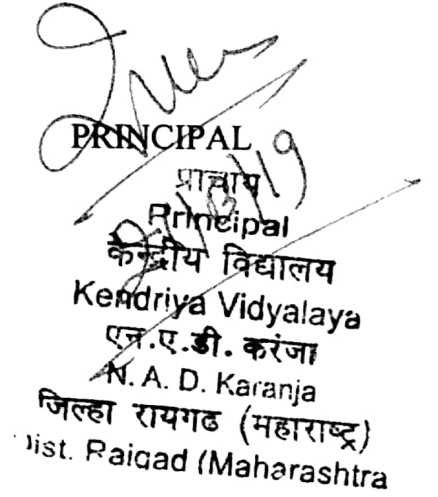 PRINCIPAL
प्राचार्य
Principal
केन्द्रीय विद्यालय
Kendriya Vidyalaya
एन.ए.डी. करंजा
N. A. D. Karanja
जिल्हा रायगढ (महाराष्ट्र)
Dist. Raigad (Maharashtra